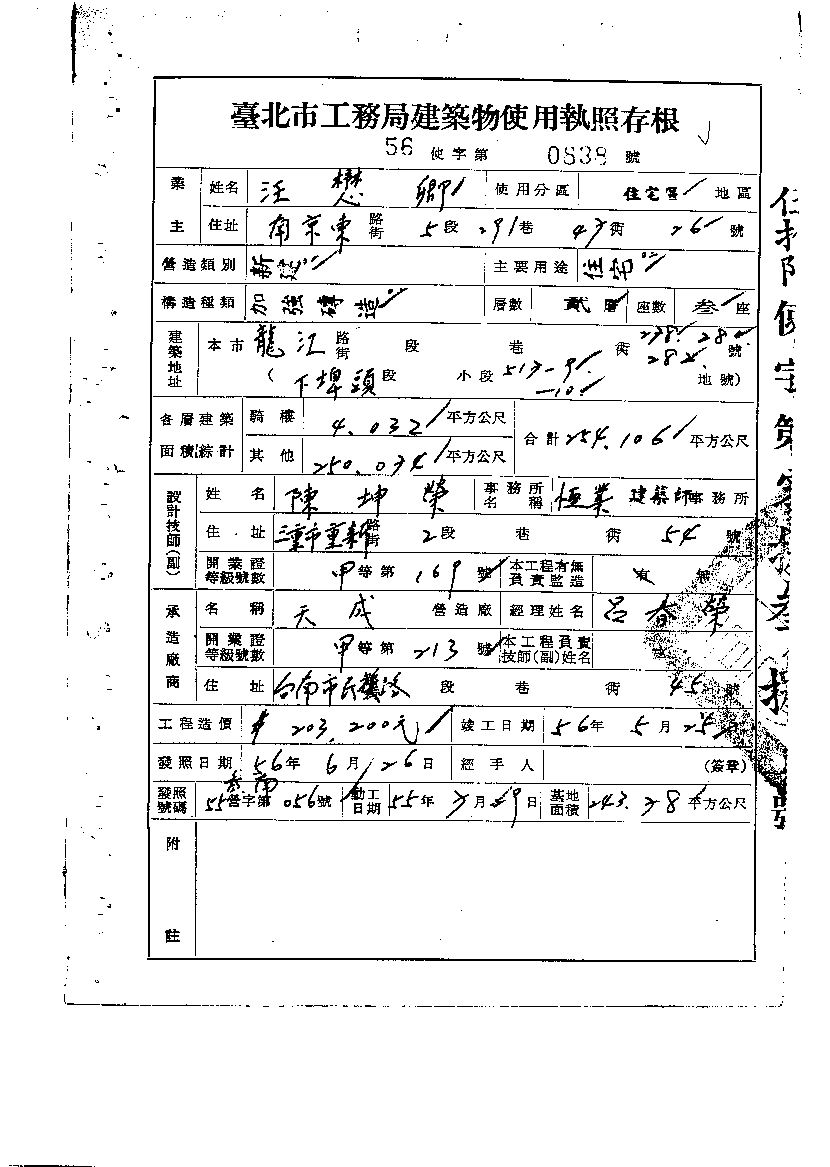 臺北市工務局建築物使用執照存根
56 使字第 0838 號
業主 姓名 汪懋卿 使用分區 住宅區 地區
住址 南京東 路街 5 段 291 巷 街 26 號
營造類別 新建 主要用途 住宅
構造種類 加強磚造 層數 貳層 座數 叁 座
建築地址 本市 龍江 路街 段 巷 街 號
( 下埤頭 段 小段 513-9 -10 地號)
各層建築面積綜計 騎樓 4.032 平方公尺 合計 254.106 平方公尺
其他 250.074 平方公尺
設計技師(副) 姓名 陳坤榮 事務所名稱 恒業 建築師事務所
住址 三重市重新 路街 2 段 巷 街 54 號
開業證等級號數 甲 等第 169 號 本工程有無負責監造 有 無
承造廠商 名稱 天成 營造廠 經理姓名 呂春榮
開業證等級號數 甲 等第 213 號 本工程負責技師(副)姓名
住址 台南市民 段 巷 街 45 號
工程造價 203,200元 竣工日期 56年 5月 25
發照日期 56年 6月 26日 經手人 (簽章)
發照號碼 55 營字第 056 號 動工日期 55年 月 日 基地面積 243.28 平方公尺
附註